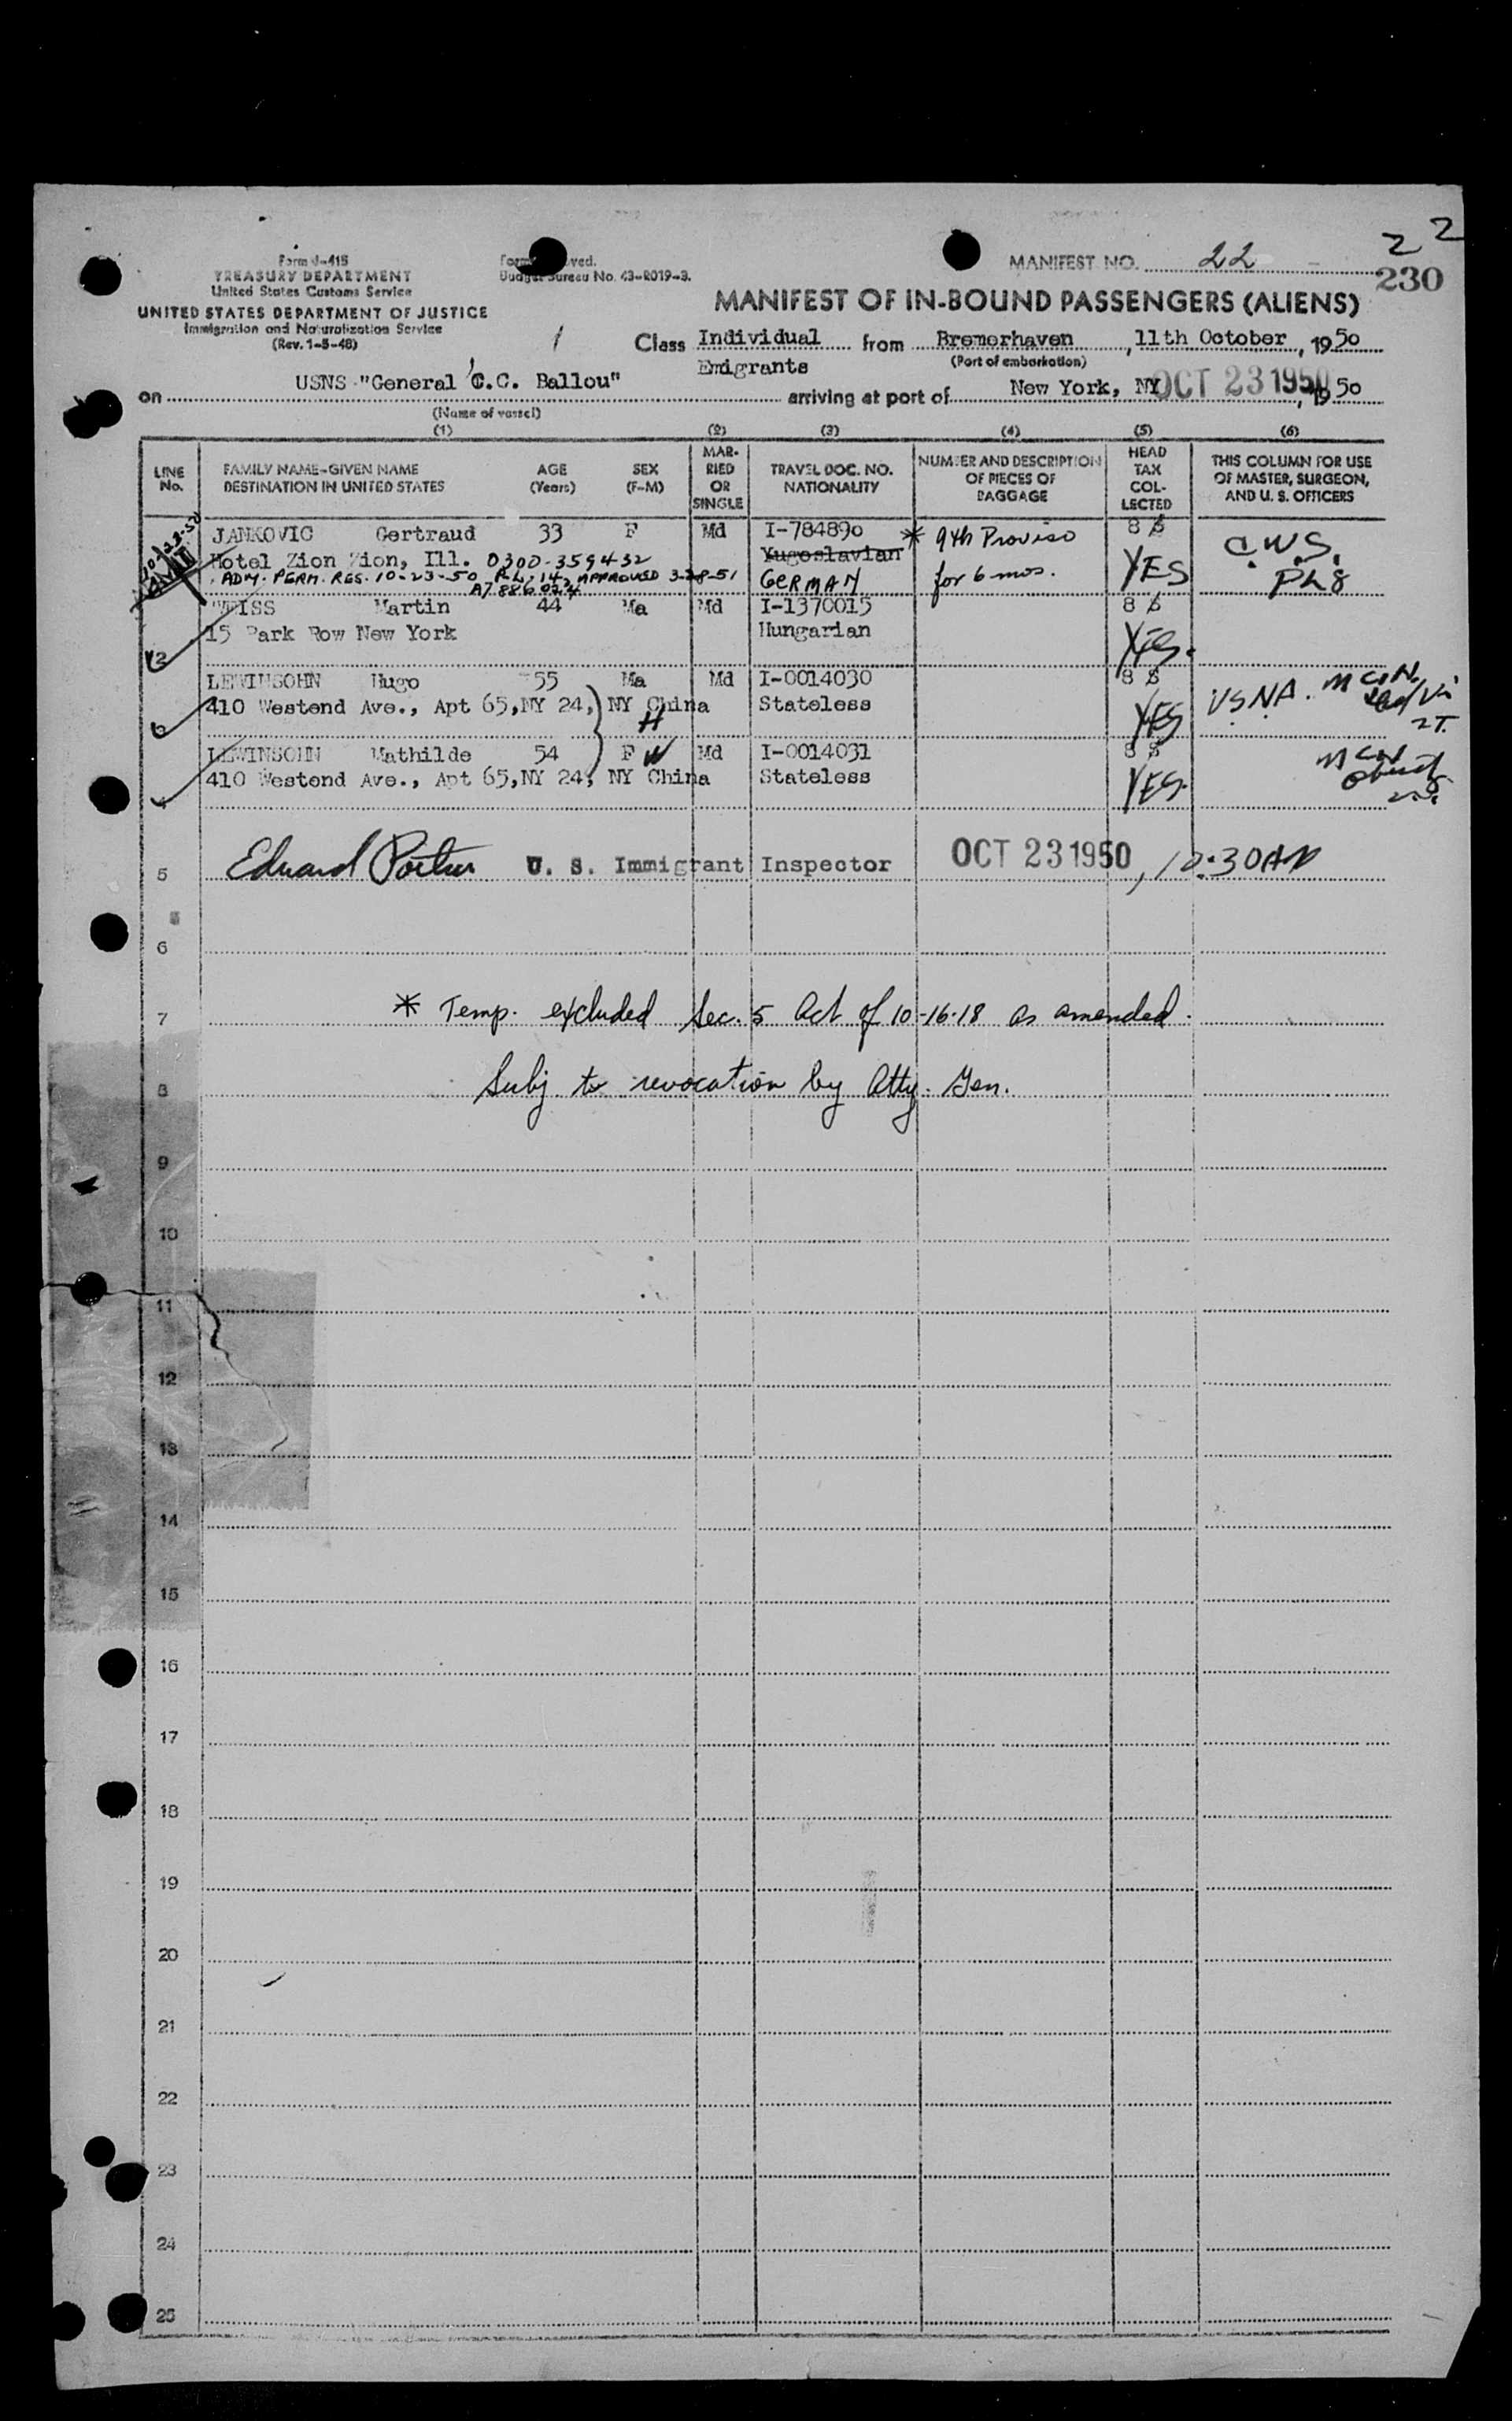 22
Form I-415
TREASURY DEPARTMENT
United States Customs Service
UNITED STATES DEPARTMENT OF JUSTICE
Immigration and Naturalization Service
(Rev. 1-5-48)
Budget Bureau No. 43-R019-3.
MANIFEST NO. 22
230
MANIFEST OF IN-BOUND PASSENGERS (ALIENS)
Class Individual Emigrants from Bremerhaven, 11th October, 1950
(Port of embarkation)
on USNS "General C.C. Ballou" arriving at port of New York, NY OCT 23 1950, 1950
(Name of vessel)
(1) (2) (3) (4) (5) (6)
LINE No.
FAMILY NAME-GIVEN NAME DESTINATION IN UNITED STATES
AGE (Years)
SEX (F-M)
MARRIED OR SINGLE
TRAVEL DOC. NO. NATIONALITY
NUMBER AND DESCRIPTION OF PIECES OF BAGGAGE
HEAD TAX COLLECTED
THIS COLUMN FOR USE OF MASTER, SURGEON, AND U. S. OFFICERS
JANKOVIC Gertraud 33 F Md I-784890 * 9th Proviso 8 $ C.W.S.
Hotel Zion Zion, Ill. 0300-359432 Yugoslavian for 6 mos. YES
ADM. PERM. RES. 10-23-50 P.L. 14, APPROVED 3-28-51 GERMAN
A7886024
WEISS Martin 44 Ma Md I-1370015 8 $
15 Park Row New York Hungarian YES.
LEWINSOHN Hugo 55 Ma Md I-0014030 8 $ USNA.
410 Westend Ave., Apt 65,NY 24, NY China Stateless YES
H
LEWINSOHN Mathilde 54 F W Md I-0014031 8 $
410 Westend Ave., Apt 65,NY 24, NY China Stateless YES.
4
5 Edward Porter U. S. Immigrant Inspector OCT 23 1950, 10:30AM
6
7 * Temp. excluded Sec. 5 Act of 10-16-18 as amended.
8 Subj to revocation by Atty. Gen.
9
10
11
12
13
14
15
16
17
18
19
20
21
22
23
24
25